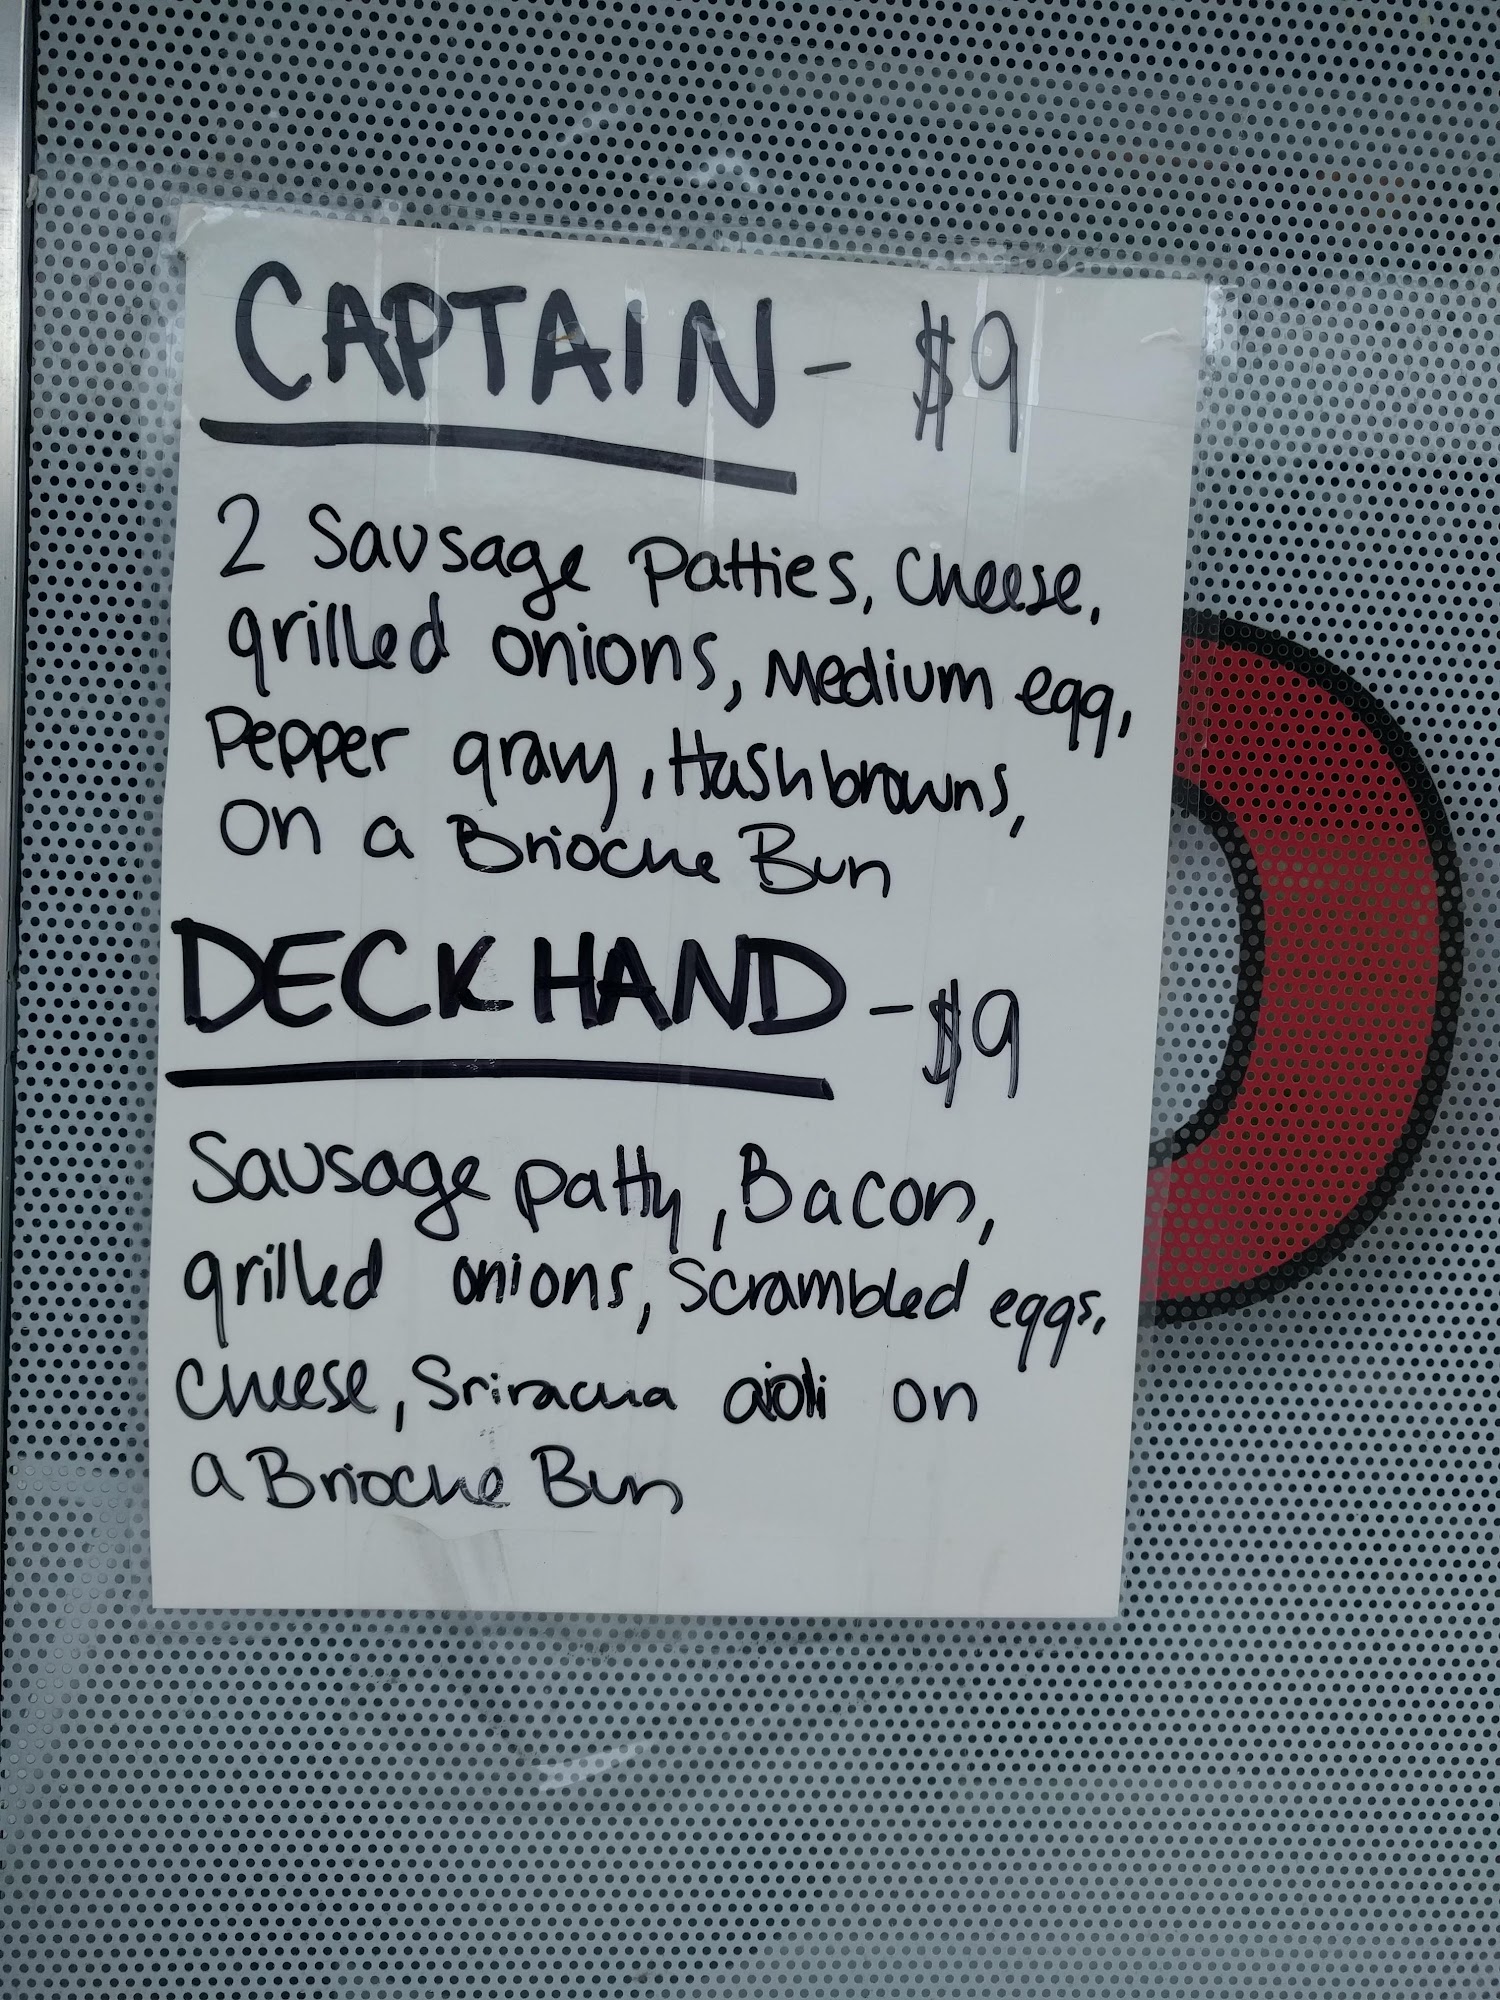 CAPTAIN - $9
2 Sausage Patties, Cheese,
grilled onions, Medium egg,
Pepper gravy, Hashbrowns,
on a Brioche Bun
DECK HAND - $9
Sausage patty, Bacon,
grilled onions, Scrambled eggs,
Cheese, Sriracha aioli on
a Brioche Bun